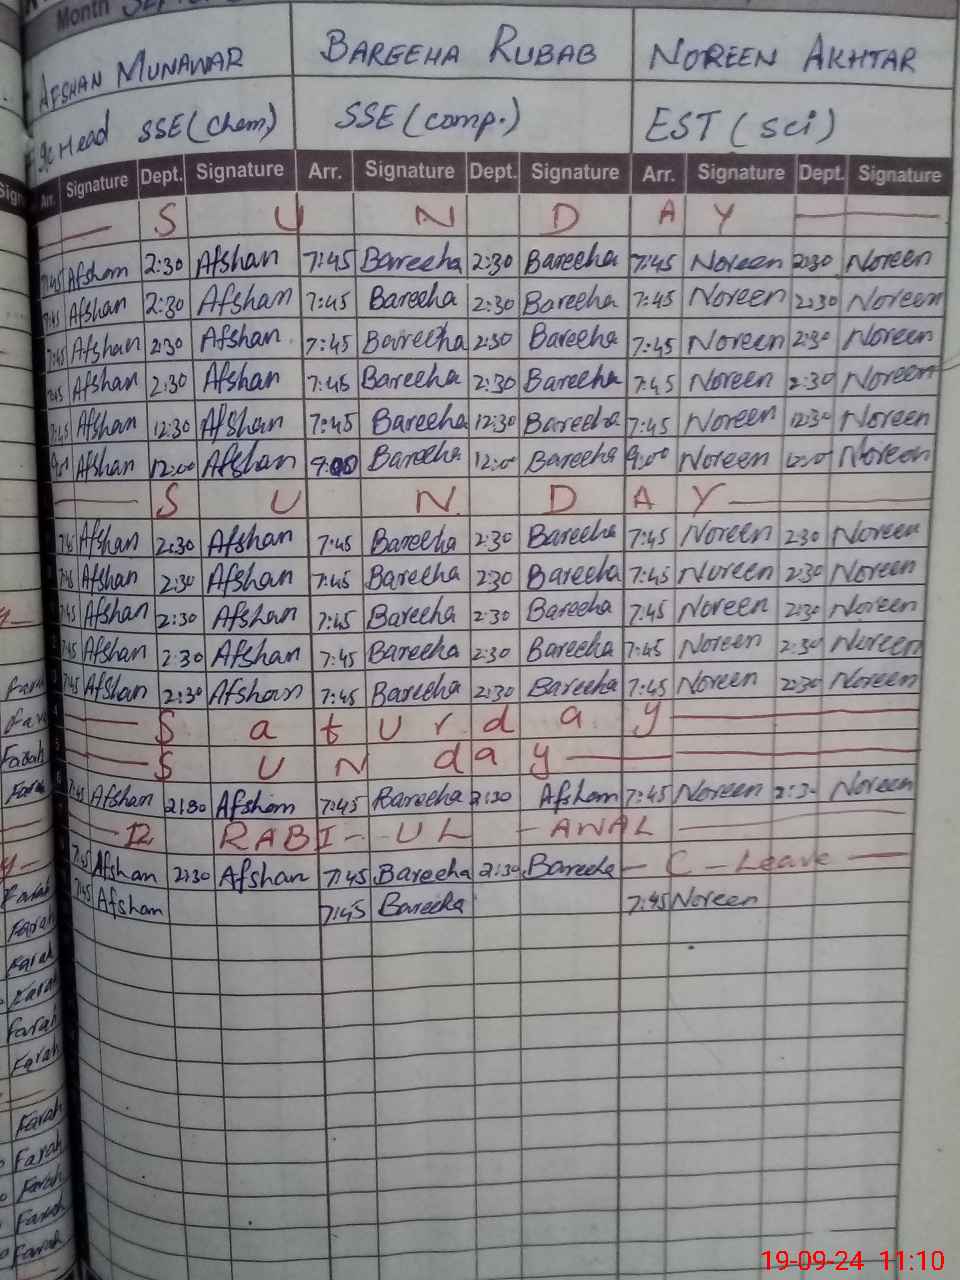 Month
AFSHAN MUNAWAR BAREEHA RUBAB NOREEN AKHTAR
Head SSE (Chem) SSE (comp.) EST (sci)
Arr. Signature Dept. Signature Arr. Signature Dept. Signature Arr. Signature Dept. Signature
S U N D A Y
7:45 Afshan 2:30 Afshan 7:45 Bareeha 2:30 Bareeha 7:45 Noreen 2:30 Noreen
7:45 Afshan 2:30 Afshan 7:45 Bareeha 2:30 Bareeha 7:45 Noreen 2:30 Noreen
7:45 Afshan 2:30 Afshan 7:45 Bareeha 2:30 Bareeha 7:45 Noreen 2:30 Noreen
7:45 Afshan 2:30 Afshan 7:45 Bareeha 2:30 Bareeha 7:45 Noreen 2:30 Noreen
7:45 Afshan 12:30 Afshan 7:45 Bareeha 12:30 Bareeha 7:45 Noreen 12:30 Noreen
9:00 Afshan 12:00 Afshan 9:00 Bareeha 12:00 Bareeha 9:00 Noreen 12:00 Noreen
S U N D A Y
7:45 Afshan 2:30 Afshan 7:45 Bareeha 2:30 Bareeha 7:45 Noreen 2:30 Noreen
7:45 Afshan 2:30 Afshan 7:45 Bareeha 2:30 Bareeha 7:45 Noreen 2:30 Noreen
7:45 Afshan 2:30 Afshan 7:45 Bareeha 2:30 Bareeha 7:45 Noreen 2:30 Noreen
7:45 Afshan 2:30 Afshan 7:45 Bareeha 2:30 Bareeha 7:45 Noreen 2:30 Noreen
7:45 Afshan 2:30 Afshan 7:45 Bareeha 2:30 Bareeha 7:45 Noreen 2:30 Noreen
S a t u r d a y
S U N d a y
7:45 Afshan 2:30 Afshan 7:45 Bareeha 2:30 Afshan 7:45 Noreen 2:30 Noreen
12 RABI - UL - AWAL
7:45 Afshan 2:30 Afshan 7:45 Bareeha 2:30 Bareeha C - Leave
7:45 Afshan 7:45 Bareeha 7:45 Noreen
Farah
Farah
Farah
Farah
Farah
Farah
Farah
Farah
Farah
Farah
Farah
19-09-24 11:10